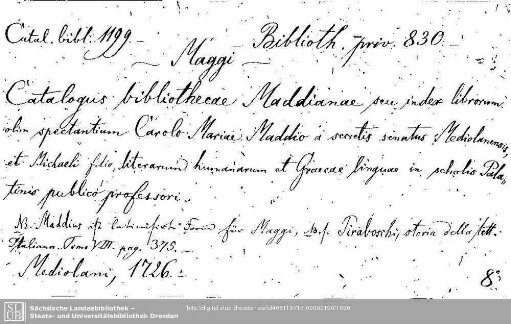 Catal. bibl. 1199.
Biblioth. priv. 830.
Maggi
Catalogus bibliothecae Maddianae seu index librorum
olim spectantium Carolo Mariae Maddio a secretis senatus Mediolanensis,
et Michaeli filio, literarum humaniorum et Graecae linguae in scholis Pala-
tinis publico professori.
NB. Maddius ist latinisirte Form für Maggi, s. Tiraboschi, storia della lett.
Italiana. Tomo VIII. pag. 375.
Mediolani, 1726.
8°
SLUB
Sächsische Landesbibliothek –
Staats- und Universitätsbibliothek Dresden